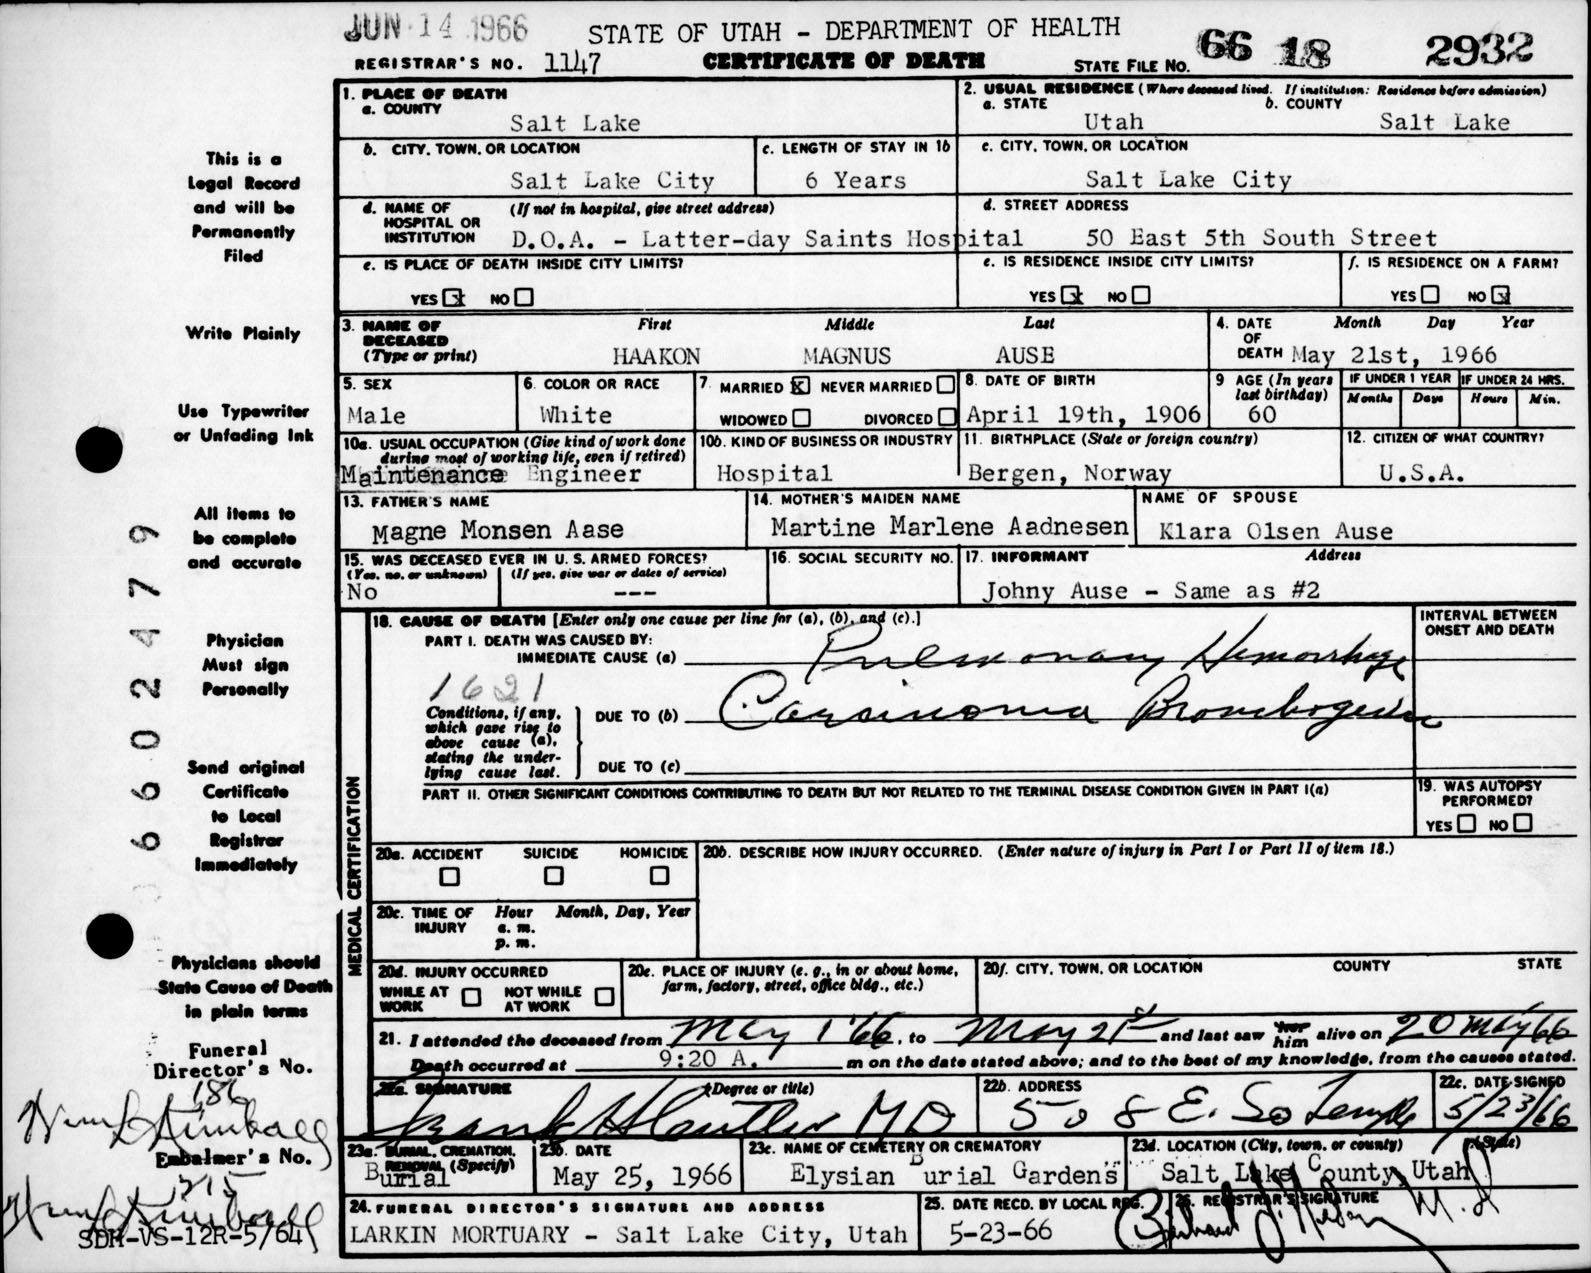 JUN 14 1966
STATE OF UTAH - DEPARTMENT OF HEALTH
REGISTRAR'S NO. 1147
CERTIFICATE OF DEATH
STATE FILE NO. 66 18 2932
This is a
Legal Record
and will be
Permanently
Filed
Write Plainly
Use Typewriter
or Unfading Ink
All items to
be complete
and accurate
Physician
Must sign
Personally
Send original
Certificate
to Local
Registrar
Immediately
Physicians should
State Cause of Death
in plain terms
Funeral
Director's No.
186
Embalmer's No.
215
SDH-VS-12R-5/64
6602479
1. PLACE OF DEATH
a. COUNTY
Salt Lake
2. USUAL RESIDENCE (Where deceased lived. If institution: Residence before admission)
a. STATE b. COUNTY
Utah Salt Lake
b. CITY, TOWN, OR LOCATION
Salt Lake City
c. LENGTH OF STAY IN 1b
6 Years
c. CITY, TOWN, OR LOCATION
Salt Lake City
d. NAME OF HOSPITAL OR INSTITUTION (If not in hospital, give street address)
D.O.A. - Latter-day Saints Hospital
d. STREET ADDRESS
50 East 5th South Street
e. IS PLACE OF DEATH INSIDE CITY LIMITS?
YES x NO
e. IS RESIDENCE INSIDE CITY LIMITS?
YES x NO
f. IS RESIDENCE ON A FARM?
YES NO x
3. NAME OF DECEASED (Type or print)
First Middle Last
HAAKON MAGNUS AUSE
4. DATE OF DEATH
Month Day Year
May 21st, 1966
5. SEX
Male
6. COLOR OR RACE
White
7. MARRIED x NEVER MARRIED
WIDOWED DIVORCED
8. DATE OF BIRTH
April 19th, 1906
9 AGE (In years last birthday)
60
IF UNDER 1 YEAR
Months Days
IF UNDER 24 HRS.
Hours Min.
10a. USUAL OCCUPATION (Give kind of work done during most of working life, even if retired)
Maintenance Engineer
10b. KIND OF BUSINESS OR INDUSTRY
Hospital
11. BIRTHPLACE (State or foreign country)
Bergen, Norway
12. CITIZEN OF WHAT COUNTRY?
U.S.A.
13. FATHER'S NAME
Magne Monsen Aase
14. MOTHER'S MAIDEN NAME
Martine Marlene Aadnesen
NAME OF SPOUSE
Klara Olsen Ause
15. WAS DECEASED EVER IN U. S. ARMED FORCES?
(Yes, no, or unknown) (If yes, give war or dates of service)
No ---
16. SOCIAL SECURITY NO.
17. INFORMANT Address
Johny Ause - Same as #2
MEDICAL CERTIFICATION
18. CAUSE OF DEATH [Enter only one cause per line for (a), (b), and (c).]
INTERVAL BETWEEN ONSET AND DEATH
PART I. DEATH WAS CAUSED BY:
IMMEDIATE CAUSE (a) Pulmonary Hemorrhage
1621
Conditions, if any, which gave rise to above cause (a), stating the underlying cause last.
DUE TO (b) Carcinoma Bronchogenic
DUE TO (c)
PART II. OTHER SIGNIFICANT CONDITIONS CONTRIBUTING TO DEATH BUT NOT RELATED TO THE TERMINAL DISEASE CONDITION GIVEN IN PART I(a)
19. WAS AUTOPSY PERFORMED?
YES NO
20a. ACCIDENT SUICIDE HOMICIDE
20b. DESCRIBE HOW INJURY OCCURRED. (Enter nature of injury in Part I or Part II of item 18.)
20c. TIME OF INJURY
Hour Month, Day, Year
a. m.
p. m.
20d. INJURY OCCURRED
WHILE AT WORK NOT WHILE AT WORK
20e. PLACE OF INJURY (e. g., in or about home, farm, factory, street, office bldg., etc.)
20f. CITY, TOWN, OR LOCATION COUNTY STATE
21. I attended the deceased from May 1 '66, to May 21st and last saw her him alive on 20 May 66
Death occurred at 9:20 A. m on the date stated above; and to the best of my knowledge, from the causes stated.
22a. SIGNATURE (Degree or title)
Frank H Cutler MD
22b. ADDRESS
508 E. So Temple
22c. DATE SIGNED
5/23/66
23a. BURIAL, CREMATION, REMOVAL (Specify)
Burial
23b. DATE
May 25, 1966
23c. NAME OF CEMETERY OR CREMATORY
Elysian Burial Gardens
23d. LOCATION (City, town, or county) (State)
Salt Lake County, Utah
24. FUNERAL DIRECTOR'S SIGNATURE AND ADDRESS
LARKIN MORTUARY - Salt Lake City, Utah
25. DATE RECD. BY LOCAL REG.
5-23-66
26. REGISTRAR'S SIGNATURE